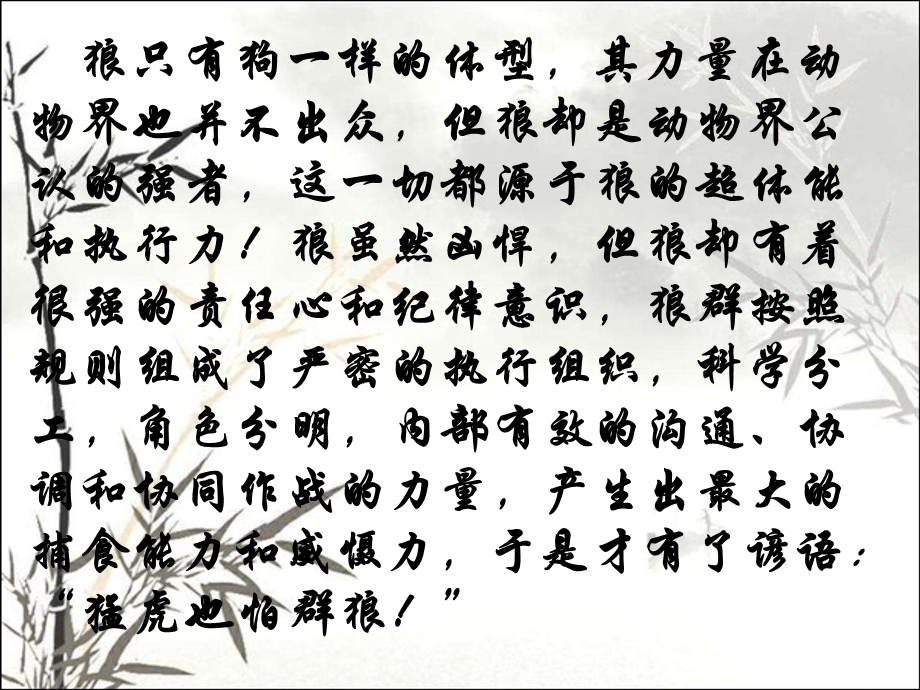 狼只有狗一样的体型，其力量在动
物界也并不出众，但狼却是动物界公
认的强者，这一切都源于狼的超体能
和执行力！狼虽然凶悍，但狼却有着
很强的责任心和纪律意识，狼群按照
规则组成了严密的执行组织，科学分
工，角色分明，内部有效的沟通、协
调和协同作战的力量，产生出最大的
捕食能力和威慑力，于是才有了谚语：
“猛虎也怕群狼！”